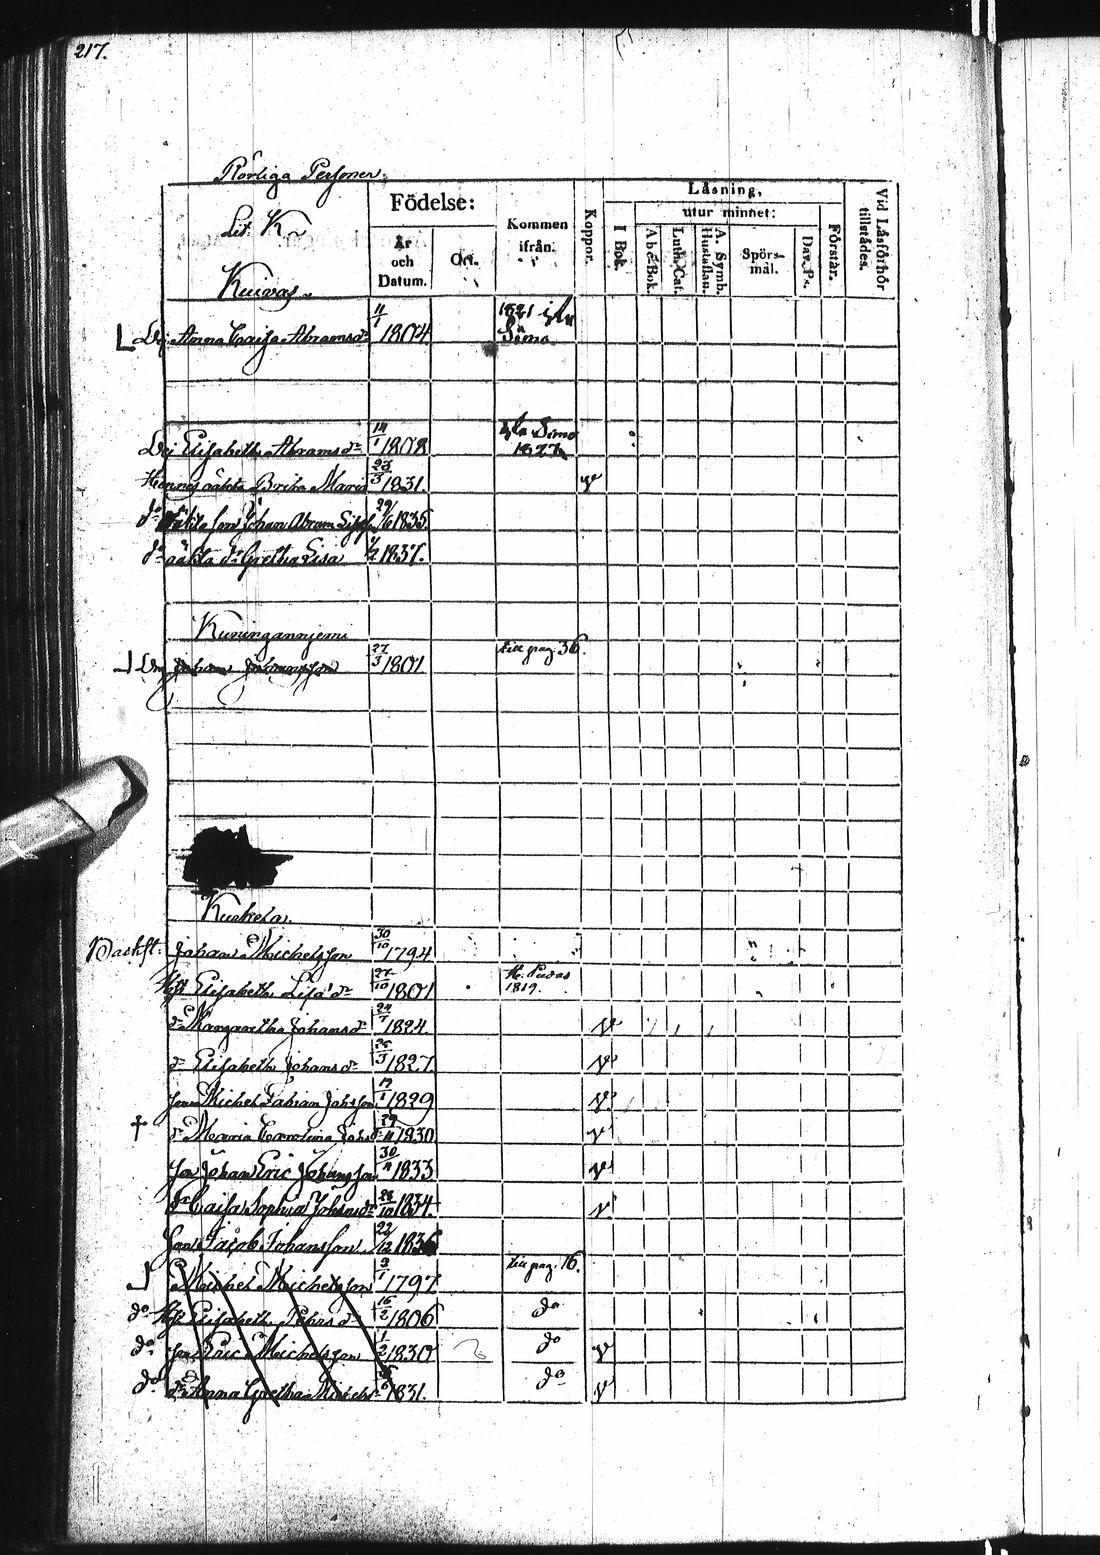 217.
Rörliga Personer.
Lit. K
Kuivas
Födelse:
År och Datum.
Ort.
Kommen ifrån.
Koppor.
Låsning,
utur minnet:
I Bok.
Abc-Bok.
Luth. Cat.
A. Symb. Hustaflan.
Spörs-mål.
Dav. Ps.
Förstår.
Vid Låsförhör tillstädes.
Anna Caisa Abramsdr 11/1 1804 1821 Simo
Elisabeth Abramsdr 14/1 1808 Simo 1827
Hennes oäkta Brita Maria 23/3 1831. v
do Johan Abram 29/6 1835
do oäkta dr Gretha Lisa 1/2 1837.
Kuningannjemi
Johan Johansson 27/3 1801 till pag. 36.
Kuskela.
Backst: Johan Michelsson 30/10 1794
Hst Elisabeth Lisa dr 27/10 1801 1819.
dr Margaretha Johansdr 24/7 1824. v
dr Elisabeth Johansdr 25/3 1827 v
son Michel Fabian Johsson 19/1 1829 v
† dr Maria Carolina Johsdr 29/11 1830 v
son Johan Eric Johansson 30 1833 v
dr Caisa Sophia Johansdr 28/10 1834. v
son Jacob Johansson 22/12 1836
Michel Michelsson 9/1 1797 till pag. 16.
do Hst Elisabeth Pehrsdr 16/2 1806 do
do son Eric Michelsson 1/2 1830 do v
do dr Anna Gretha Michelsdr 1831. do v